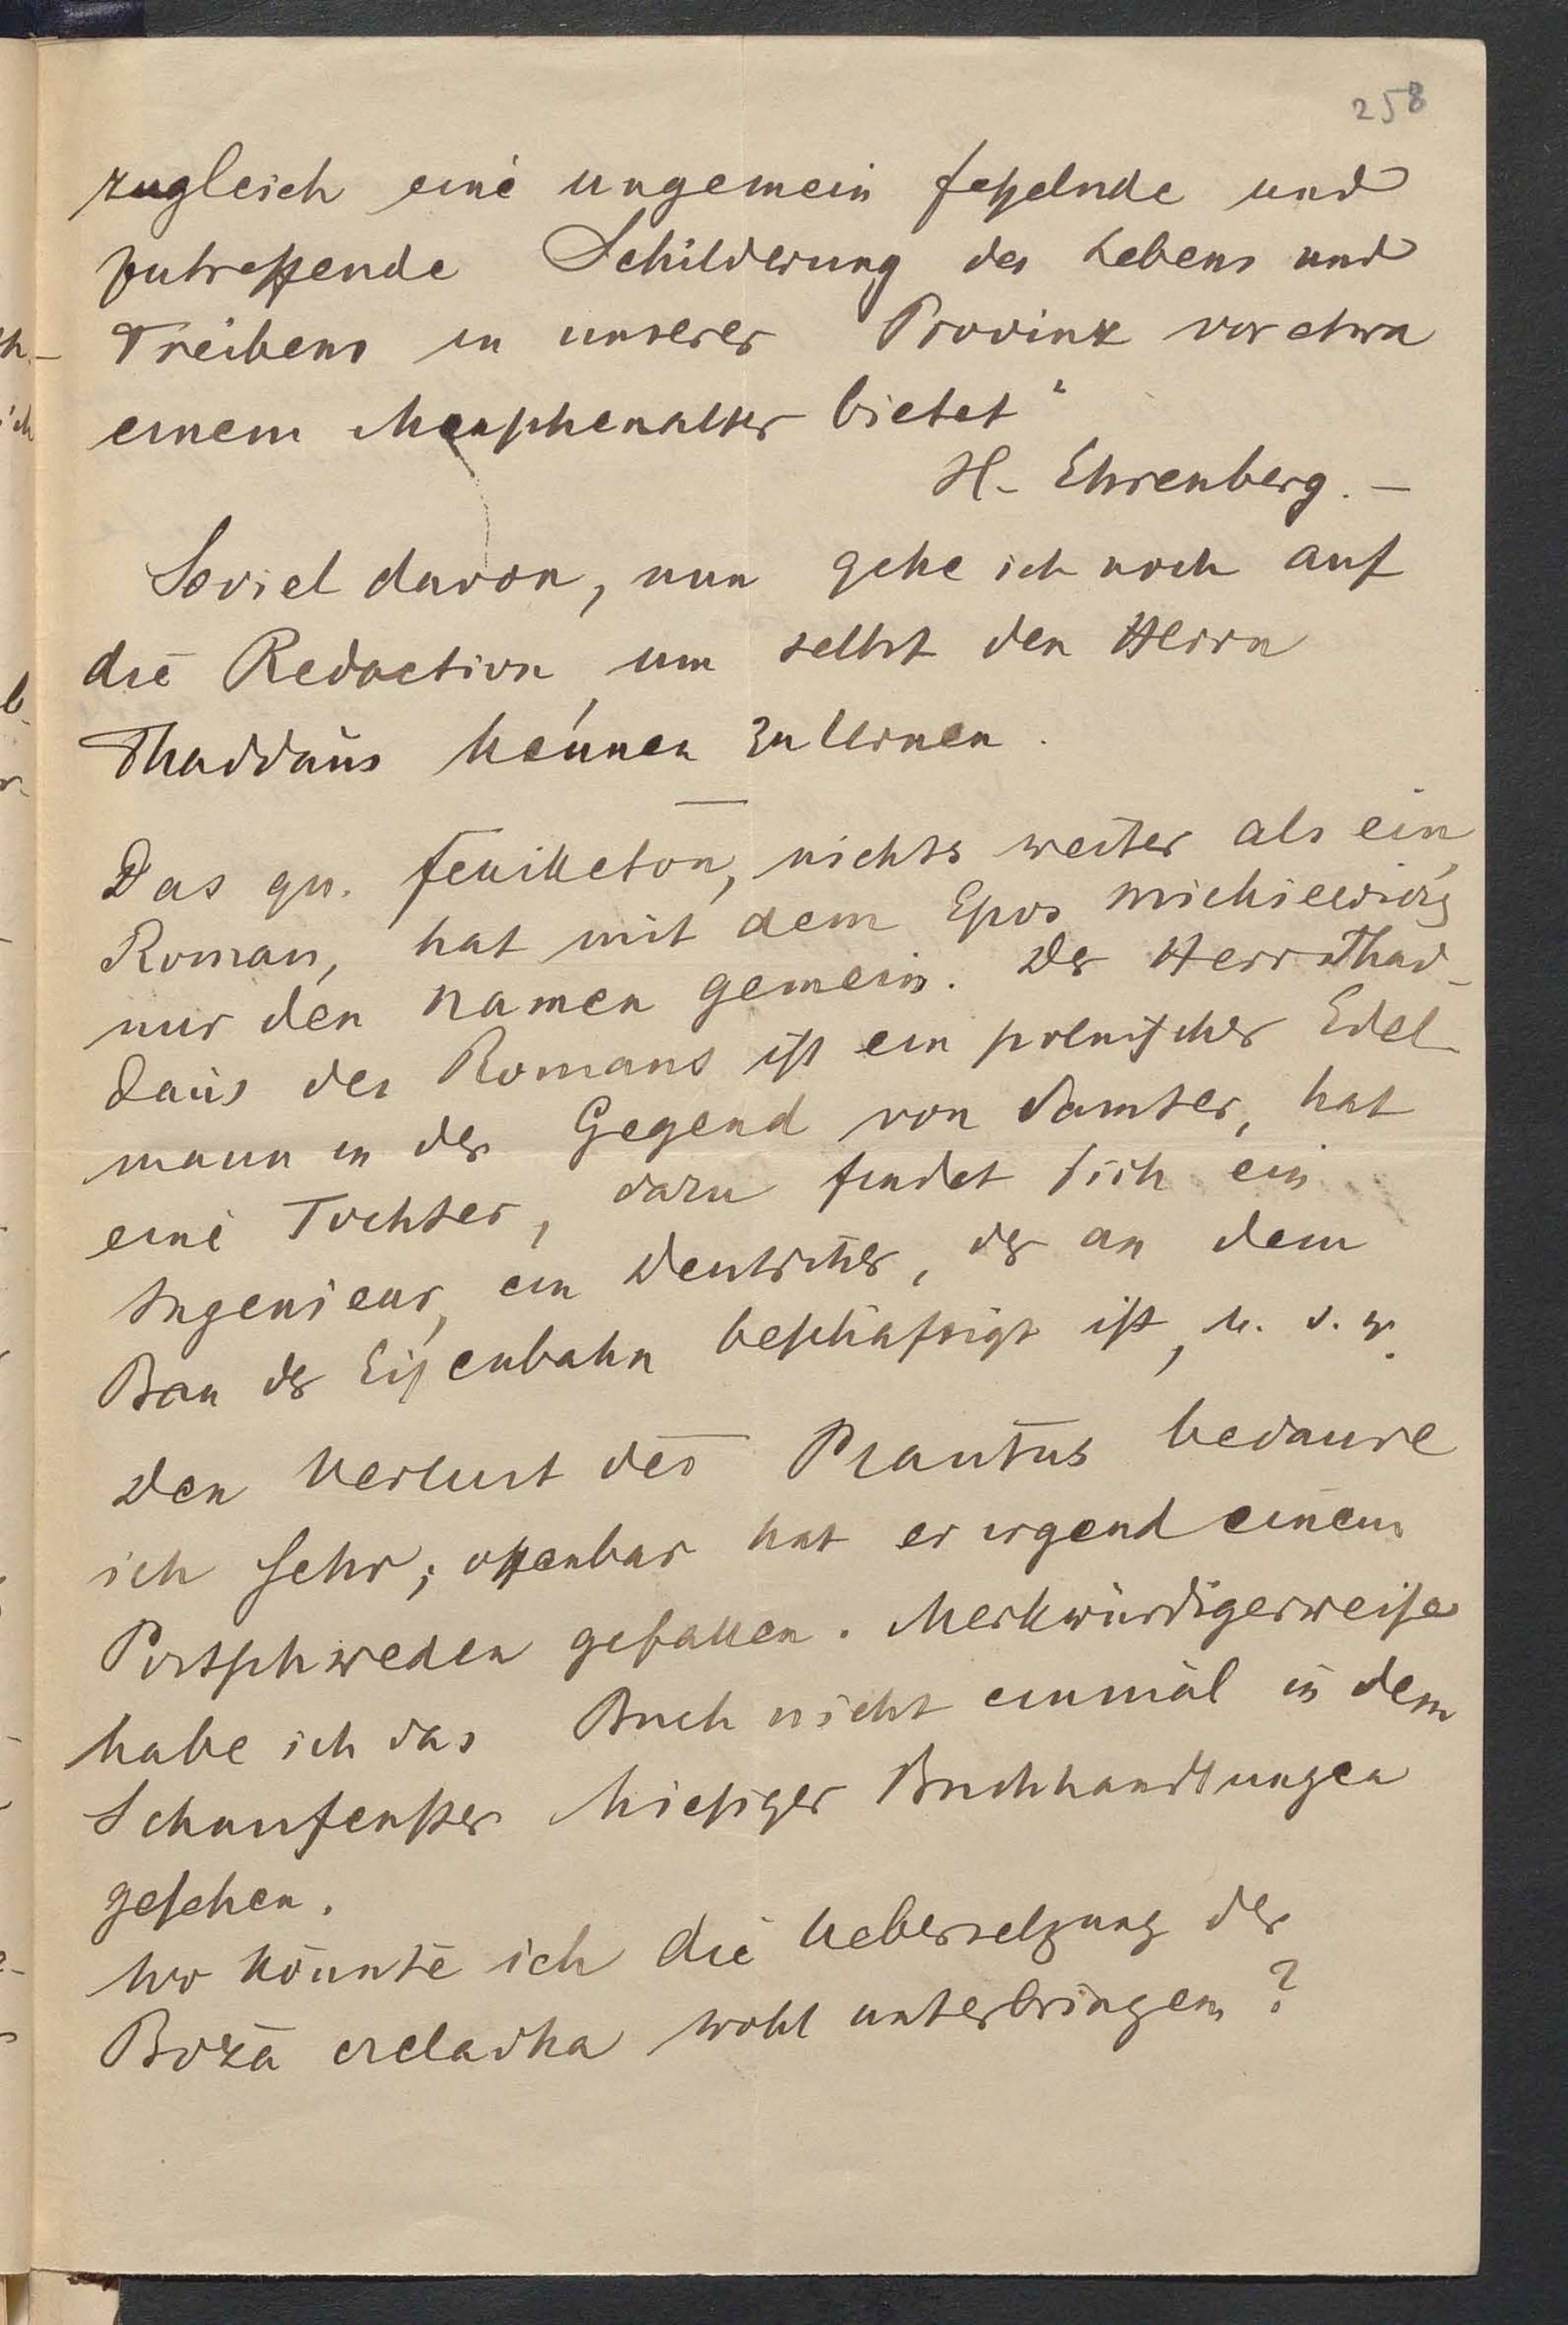 258
zugleich eine ungemein fesselnde und
zutreffende Schilderung des Lebens und
Treibens in unserer Provinz vor etwa
einem Menschenalter bietet"
H. Ehrenberg. –
Soviel davon, nun gehe ich noch auf
die Redaction, um selbst den Herrn
Thaddäus kennen zu lernen.
Das qu. Feuilleton, nichts weiter als ein
Roman, hat mit dem Epos Mickiewicz
nur den Namen gemein. Der Herr Thad-
däus des Romans ist ein polnischer Edel-
mann in der Gegend von Samter, hat
eine Tochter, dazu findet sich ein
Ingenieur, ein Deutscher, der an dem
Bau der Eisenbahn beschäftigt ist, u. s. w.
Den Verlust des Plautus bedaure
ich sehr; offenbar hat er irgend einem
Postschweden gefallen. Merkwürdigerweise
habe ich das Buch nicht einmal in dem
Schaufenster hiesiger Buchhandlungen
gesehen.
Wo könnte ich die Uebersetzung der
Boża czeladka wohl unterbringen?